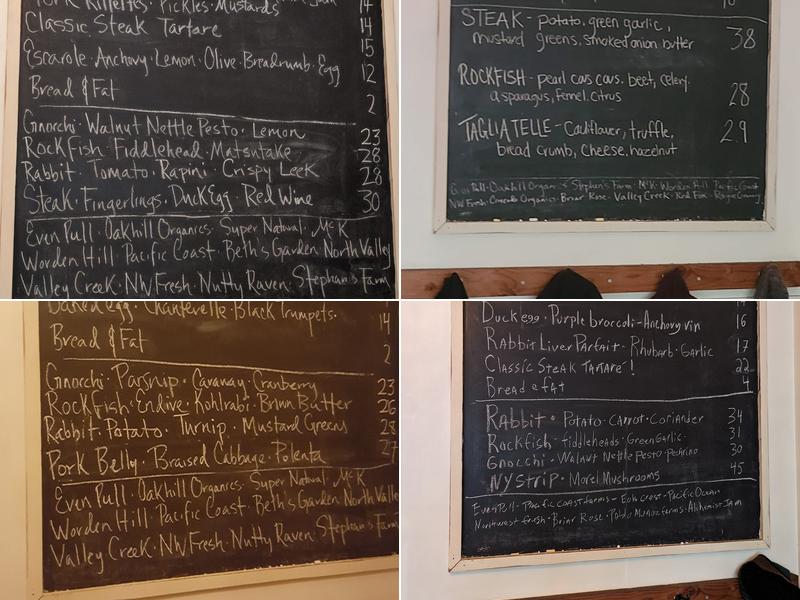 Pickles · Mustards 14
Classic Steak Tartare 14
15
Escarole · Anchovy · Lemon · Olive · Breadcrumb · Egg 12
Bread & Fat 2
Gnocchi · Walnut Nettle Pesto · Lemon 23
Rockfish · Fiddlehead · Matsutake 28
Rabbit · Tomato · Rapini · Crispy Leek 28
Steak · Fingerlings · Duck Egg · Red Wine 30
Even Pull · Oakhill Organics · Super Natural · McK
Worden Hill · Pacific Coast · Beth's Garden · North Valley
Valley Creek · NW Fresh · Nutty Raven · Stephan's Farm
STEAK - potato, green garlic,
mustard greens, smoked onion butter 38
ROCKFISH - pearl cous cous. beet, celery.
asparagus, fennel, citrus 28
TAGLIATELLE - Cauliflower, truffle,
bread crumb, cheese, hazelnut 29
Even Pull · Oakhill Organics · Stephan's Farm · McK · Worden Hill · Pacific Coast
NW Fresh · Organics · Briar Rose · Valley Creek · Red Fox
Baked egg · Chanterelle · Black Trumpets. 14
Bread & Fat 2
Gnocchi · Parsnip · Caraway · Cranberry 23
Rockfish · Endive · Kohlrabi · Brown Butter 26
Rabbit · Potato · Turnip · Mustard Greens 28
Pork Belly · Braised Cabbage · Polenta 27
Even Pull · Oakhill Organics · Super Natural · McK
Worden Hill · Pacific Coast · Beth's Garden · North Valley
Valley Creek · NW Fresh · Nutty Raven · Stephan's Farm
Duck egg · Purple broccoli - Anchovy vin 16
Rabbit Liver Parfait - Rhubarb · Garlic 17
Classic Steak Tartare! 22
Bread & fat 4
Rabbit · Potato · Carrot · Coriander 34
Rockfish - fiddleheads · Green Garlic 31
Gnocchi - Walnut Nettle Pesto · Pechrino 30
NY Strip · Morel Mushrooms 45
Even Pull - Pacific Coast farms - Eola crest - Pacific Ocean
Northwest fresh · Briar Rose · Pablo Munoz farms · Alchemist Jam